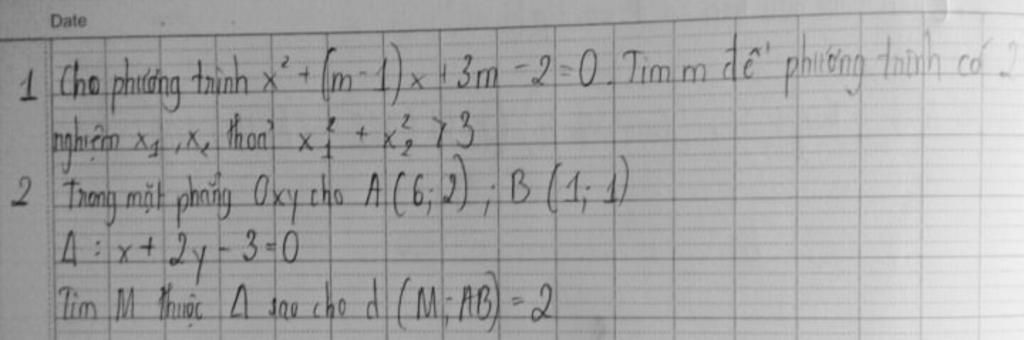 Date
1 Cho phương trình x² + (m - 1)x + 3m - 2 = 0. Tìm m để phương trình có 2
nghiệm x₁, x₂ thoả x₁² + x₂² > 3
2 Trong mặt phẳng Oxy cho A(6; 2); B (1; 1)
Δ: x + 2y - 3 = 0
Tìm M thuộc Δ sao cho d (M; AB) = 2